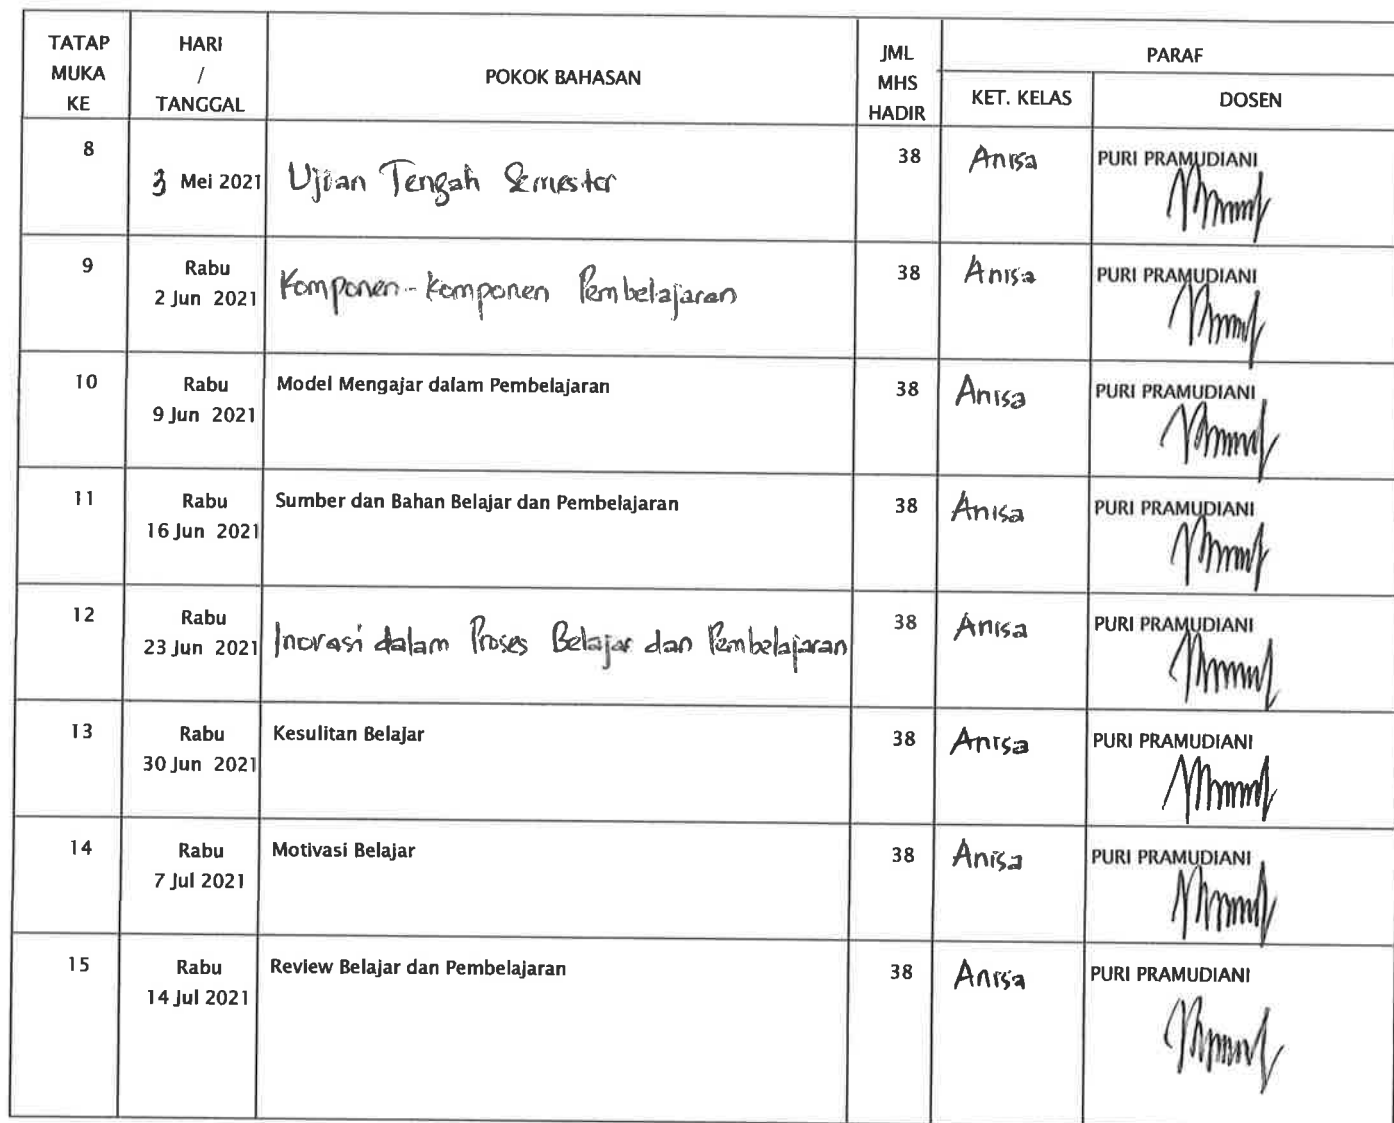 TATAP MUKA KE HARI / TANGGAL POKOK BAHASAN JML MHS HADIR PARAF
KET. KELAS DOSEN
8 3 Mei 2021 Ujian Tengah Semester 38 Anisa PURI PRAMUDIANI
9 Rabu 2 Jun 2021 Komponen-komponen Pembelajaran 38 Anisa PURI PRAMUDIANI
10 Rabu 9 Jun 2021 Model Mengajar dalam Pembelajaran 38 Anisa PURI PRAMUDIANI
11 Rabu 16 Jun 2021 Sumber dan Bahan Belajar dan Pembelajaran 38 Anisa PURI PRAMUDIANI
12 Rabu 23 Jun 2021 Inovasi dalam Proses Belajar dan Pembelajaran 38 Anisa PURI PRAMUDIANI
13 Rabu 30 Jun 2021 Kesulitan Belajar 38 Anisa PURI PRAMUDIANI
14 Rabu 7 Jul 2021 Motivasi Belajar 38 Anisa PURI PRAMUDIANI
15 Rabu 14 Jul 2021 Review Belajar dan Pembelajaran 38 Anisa PURI PRAMUDIANI